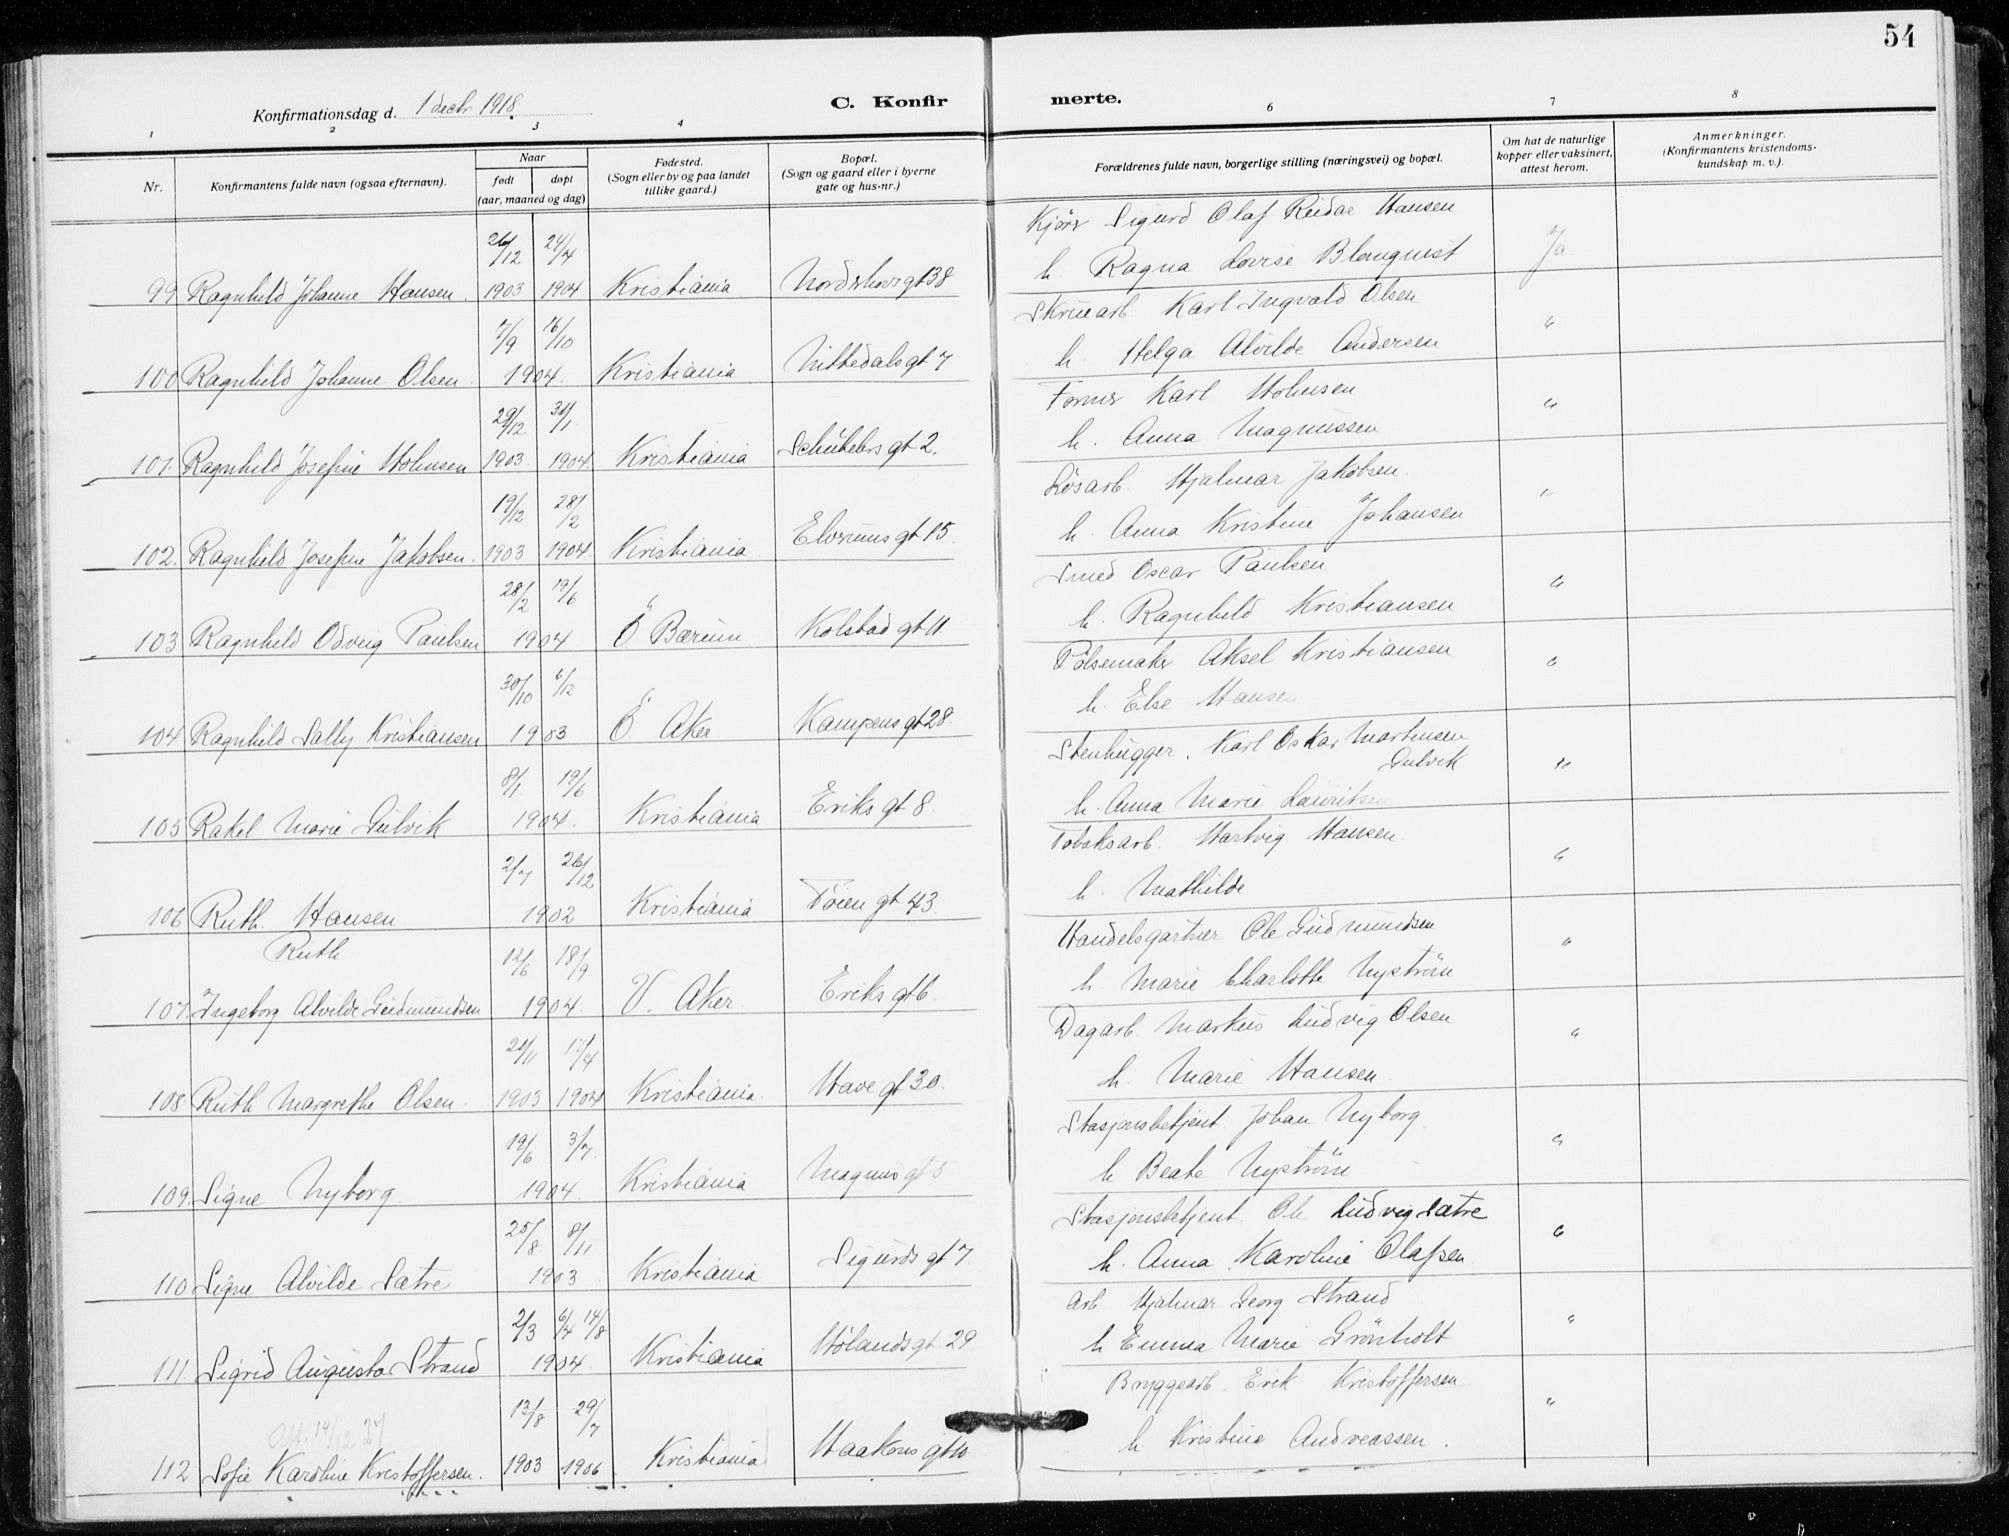 54
Konfirmationsdag d. 1 decbr 1918.
C. Konfir merte.
1 2 3 4 6 7 8
Nr.
Konfirmantens fulde navn (ogsaa efternavn).
Naar
født døpt
(aar, maaned og dag)
Fødested.
(Sogn eller by og paa landet
tillike gaard.)
Bopæl.
(Sogn og gaard eller i byerne
gate og hus-nr.)
Forældrenes fulde navn, borgerlige stilling (næringsvei) og bopæl.
Om hat de naturlige
kopper eller vaksinert,
attest herom.
Anmerkninger.
(Konfirmantens kristendoms-
kundskap m. v.)
26/12 24/4 Kjørs Sigurd Olaf Reidar Hansen
99 Ragnhild Johanne Hansen. 1903 1904 Kristiania Nordahlsgt 38 h. Ragna Lovise Blomquist Ja
7/9 16/10 Skruearb Karl Ingvald Olsen
100 Ragnhild Johanne Olsen. 1904. Kristiania Nittedalsgt 7 h. Helga Alvilde Andersen "
29/12 31/1. Former Karl Holmsen
101. Ragnhild Josefine Holmsen 1903. 1904. Kristiania Schübelers gt 2. h. Anna Magnussen "
19/12 28/2 Løsarb. Hjalmar Jakobsen.
102. Ragnhild Josefine Jakobsen. 1903 1904. Kristiania Elverums gt 15. h. Anna Kristine Johansen "
28/2 19/6 Smed Oscar Paulsen
103 Ragnhild Odveig Paulsen 1904 Ö Bærum Kolstad gt 11. h. Ragnhild Kristiansen "
30/10 6/12 Pølsemaker Aksel Kristiansen
104 Ragnhild Sally Kristiansen 1903 Ö Aker Kampens gt 28. h. Else Hansen "
8/1. 19/6 Stenhugger. Karl Oskar Martinsen
Gulvik
105 Rakel Marie Gulvik 1904. Kristiania Eriks gt 8. h. Anna Marie Lauritsen "
2/7 26/12 Tobaksarb. Hartvig Hansen
106 Ruth. Hansen 1902 Kristiania Tøien gt 43. h. Mathilde "
Ruth 12/6 18/9 Handelsgartner Ole Gudmundsen
107. Ingeborg Alvilde Gudmundsen 1904. V. Aker. Eriks gt 6. h. Marie Charlotte Nystrøm "
21/11 17/4 Dagarb. Markus Ludvig Olsen
108 Ruth Margrethe Olsen. 1903 1904 Kristiania. Have gt 30. h. Marie Hansen "
19/6 3/7. Stasjonsbetjent Johan Nyborg.
109. Signe Nyborg 1904. Kristiania Magnus gt 5 h Beate Nystrøm "
25/8 8/11 Stasjonsbetjent Ole Ludvig Sætre
110 Signe Alvilde Sætre 1903 Kristiania Sigurds gt 7. h. Anna Karoline Olafsen "
2/3 6/4 14/8 Arb Hjalmar Georg Strand
111. Sigrid Augusta Strand 1904. Kristiania Hølands gt 29 h Emma Marie Grönholt "
Att. 14/12 27 13/8 29/7 Bryggearb. Erik Kristoffersen
112. Sofie Karoline Kristoffersen. 1903 1906 Kristiania Haakons gt 10. h Kristine Andreassen. "